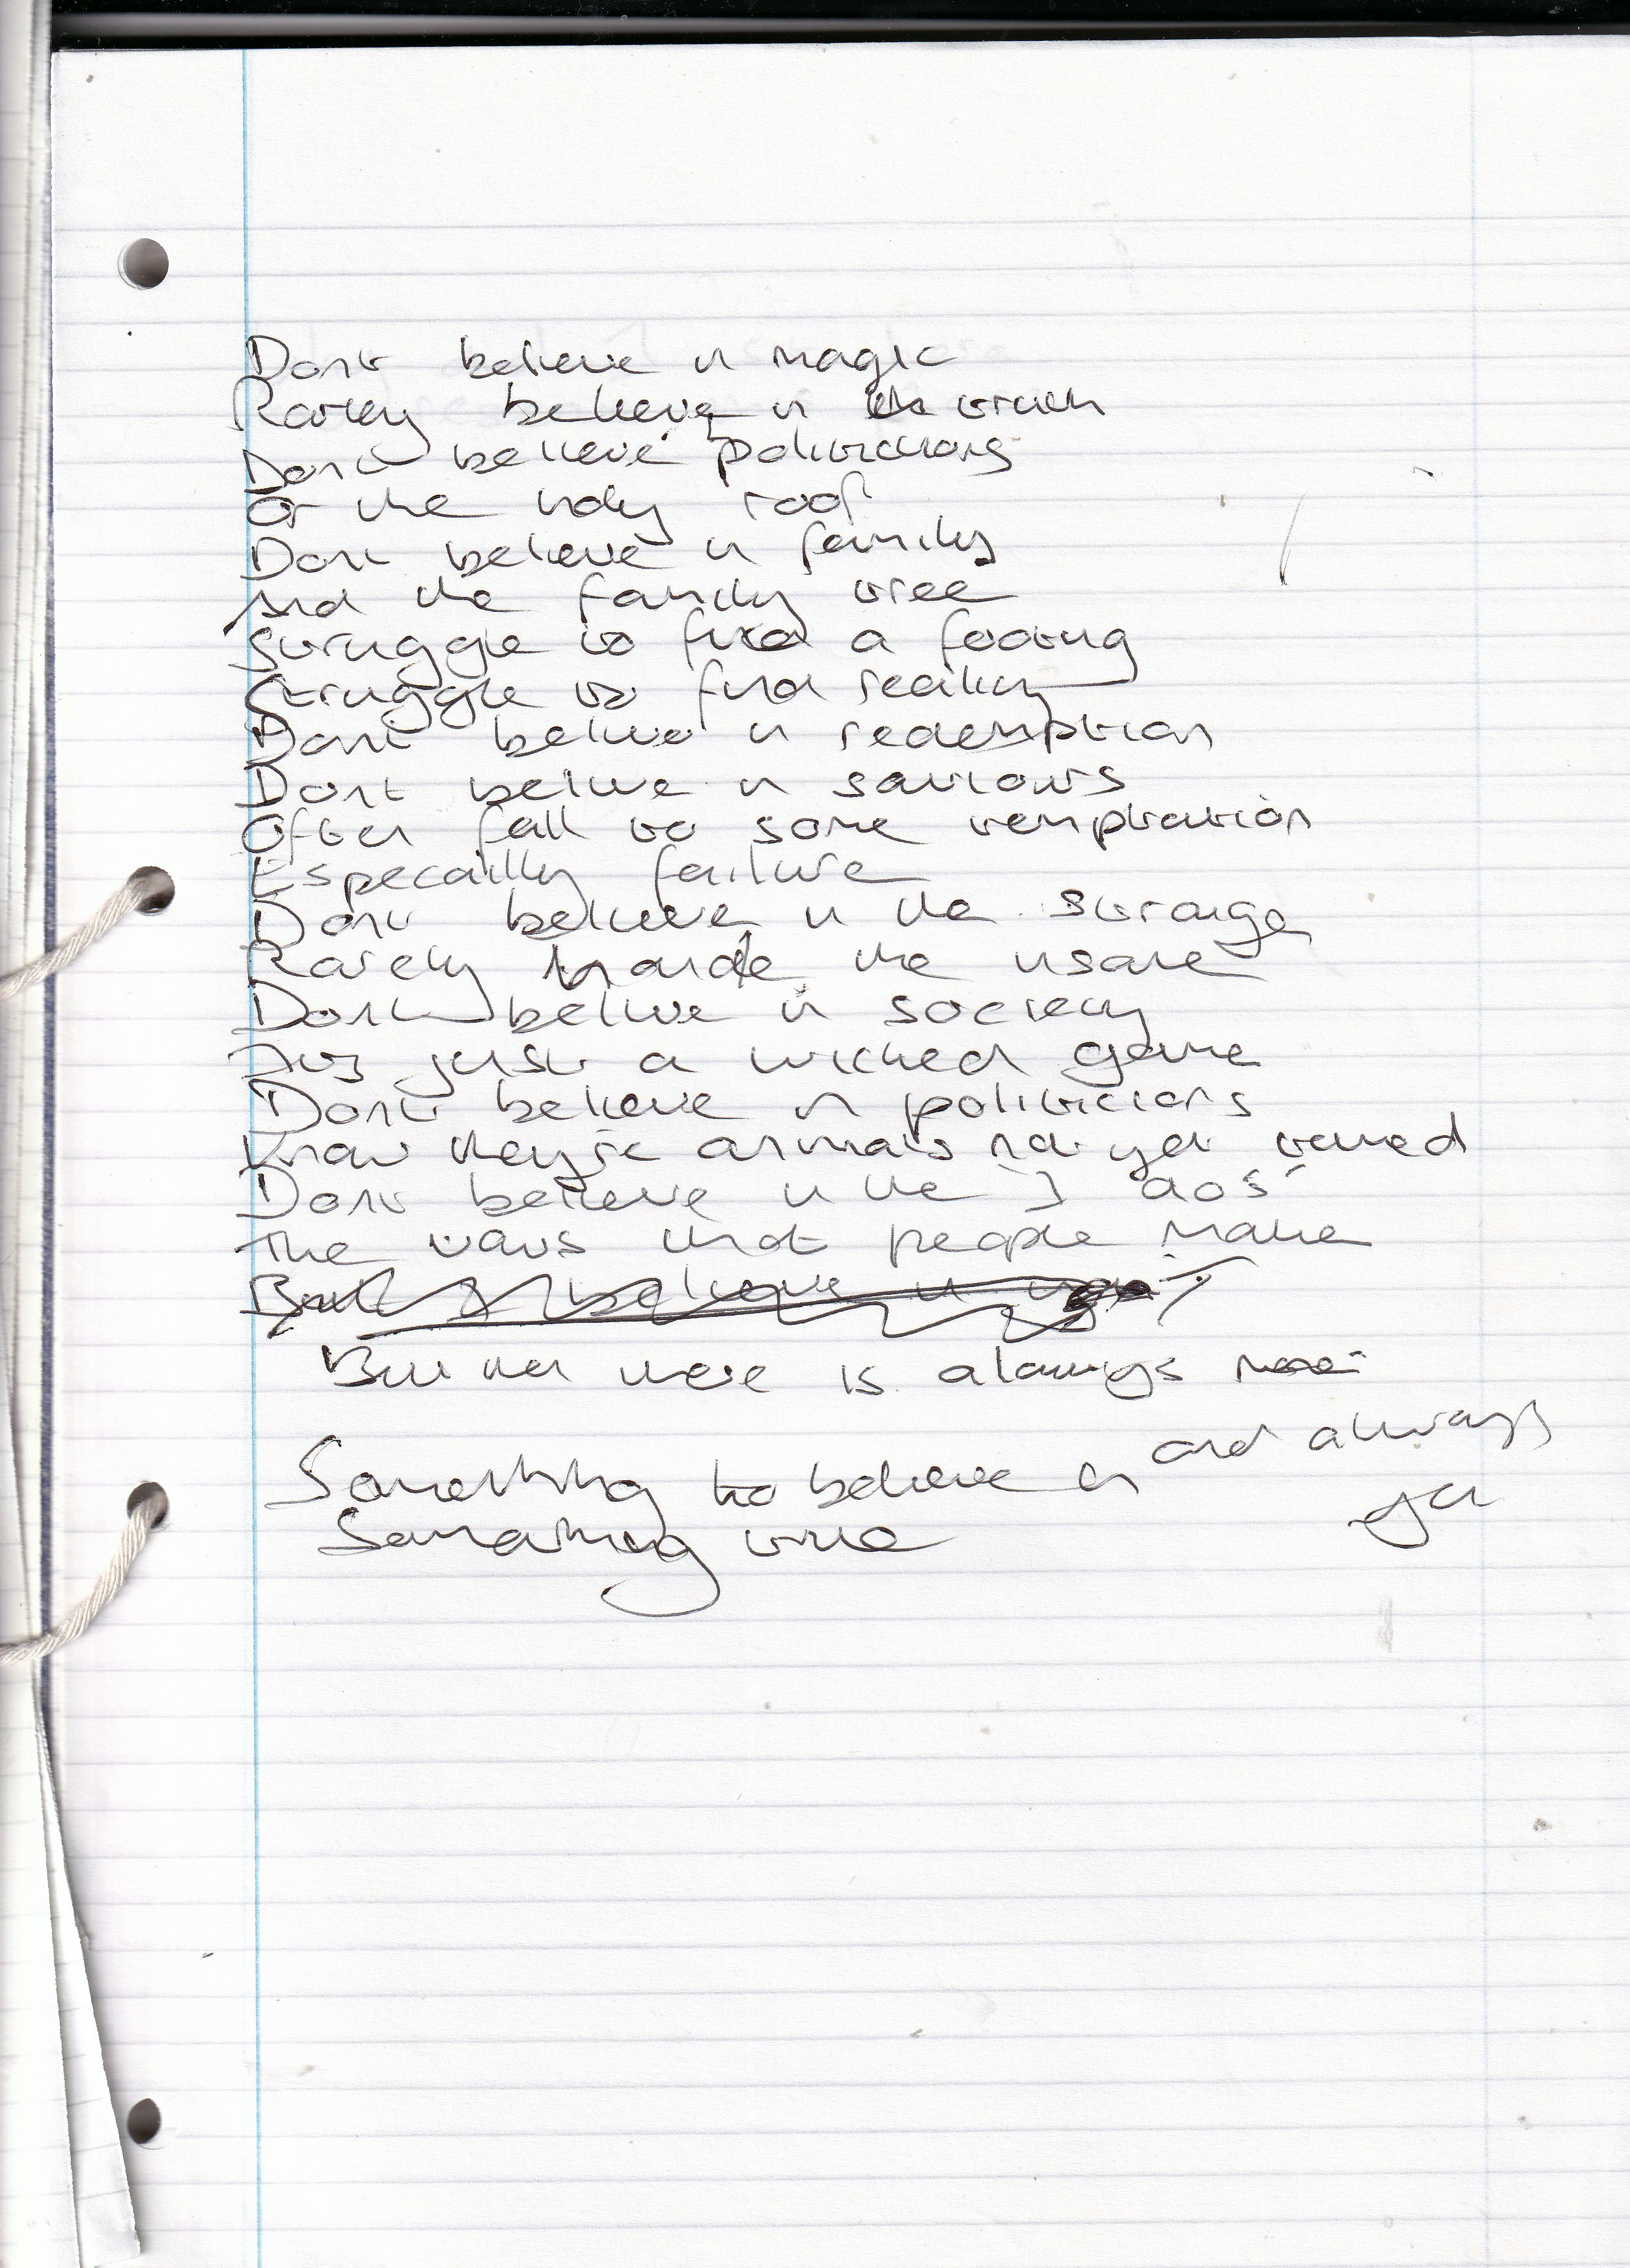 Dont believe in magic
Rarley believe in the truth
Dont believe politicians
Or the holy roof
Dont believe in family
And the family tree
Struggle to find a footing
Struggle to find reality
Dont belive in redemption
Dont belive in saviours
Often fall to some temptation
Especailly failure
Dont believe in the strange
Rarely the insane
Dont belive in society
Its just a wicked game
Dont believe in politicians
Know they're animals not yet tamed
Dont believe in the
The that people make
But I believe in
But then there is always
and always
Something to believe in
yet
Something true